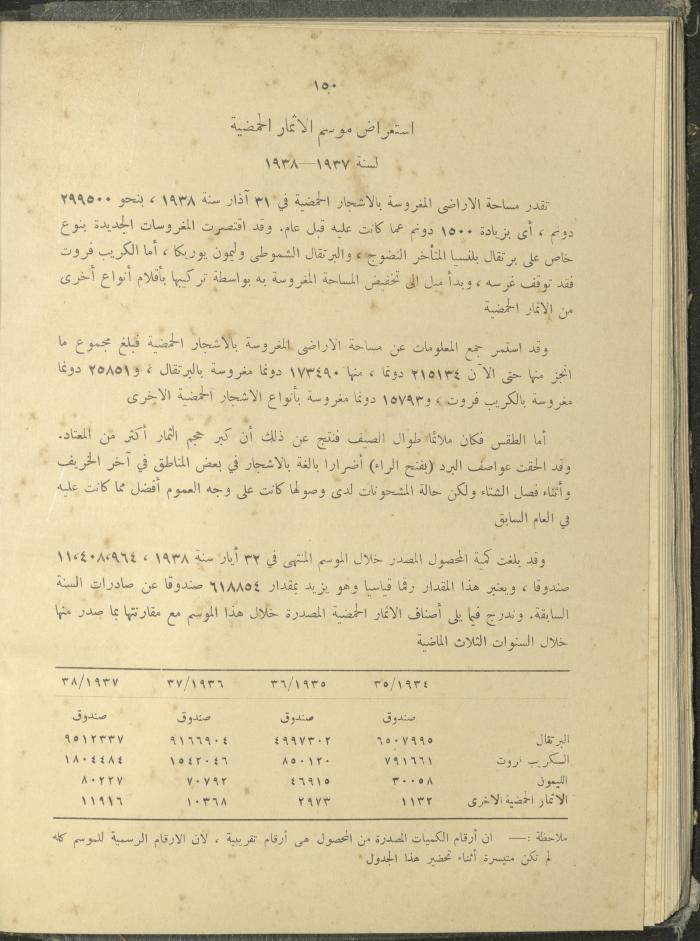 ١٥٠
استعراض موسم الاثمار الحمضية
لسنة ١٩٣٧—١٩٣٨
تقدر مساحة الاراضى المغروسة بالاشجار الحمضية في ٣١ آذار سنة ١٩٣٨ ، بنحو ٢٩٩٥٠٠
دونم ، أى بزيادة ١٥٠٠ دونم عما كانت عليه قبل عام. وقد اقتصرت المغروسات الجديدة بنوع
خاص على برتقال بلنسيا المتأخر النضوج ، والبرتقال الشموطى وليمون يوريكا ، أما الكريب فروت
فقد توقف غرسه ، وبدأ ميل الى تخفيض المساحة المغروسة به بواسطة تركيبها بأقلام أنواع أخرى
من الاثمار الحمضية
وقد استمر جمع المعلومات عن مساحة الاراضى المغروسة بالاشجار الحمضية فبلغ مجموع ما
انجز منها حتى الآن ٢١٥١٣٤ دونما ، منها ١٧٣٤٩٠ دونما مغروسة بالبرتقال ، و٢٥٨٥١ دونما
مغروسة بالكريب فروت ، و١٥٧٩٣ دونما مغروسة بأنواع الاشجار الحمضية الاخرى
أما الطقس فكان ملائما طوال الصيف فنتج عن ذلك أن كبر حجم الثمار أكثر من المعتاد.
وقد الحقت عواصف البرد (بفتح الراء) أضرارا بالغة بالاشجار في بعض المناطق في آخر الخريف
وأثناء فصل الشتاء ولكن حالة المشحونات لدى وصولها كانت على وجه العموم أفضل مما كانت عليه
في العام السابق
وقد بلغت كمية المحصول المصدر خلال الموسم المنتهى في ٣٢ أيار سنة ١٩٣٨ ، ١١،٤٠٨،٩٦٤
صندوقا ، ويعتبر هذا المقدار رقما قياسيا وهو يزيد بمقدار ٦١٨٨٥٤ صندوقا عن صادرات السنة
السابقة. وندرج فيما يلى أصناف الاثمار الحمضية المصدرة خلال هذا الموسم مع مقارنتها بما صدر منها
خلال السنوات الثلاث الماضية
٣٥/١٩٣٤ ٣٦/١٩٣٥ ٣٧/١٩٣٦ ٣٨/١٩٣٧
صندوق صندوق صندوق صندوق
البرتقال ٦٥٠٧٩٩٥ ٤٩٩٧٣٠٢ ٩١٦٦٩٠٤ ٩٥١٢٣٣٧
الكريب فروت ٧٩١٦٦١ ٨٥٠١٢٠ ١٥٤٢٠٤٦ ١٨٠٤٤٨٤
الليمون ٣٠٠٥٨ ٤٦٩١٥ ٧٠٧٩٢ ٨٠٢٢٧
الاثمار الحمضية الاخرى ١١٣٢ ٢٩٧٣ ١٠٣٦٨ ١١٩١٦
ملاحظة :— ان أرقام الكميات المصدرة من المحصول هى أرقام تقريبية ، لان الارقام الرسمية للموسم كله
لم تكن متيسرة أثناء تحضير هذا الجدول